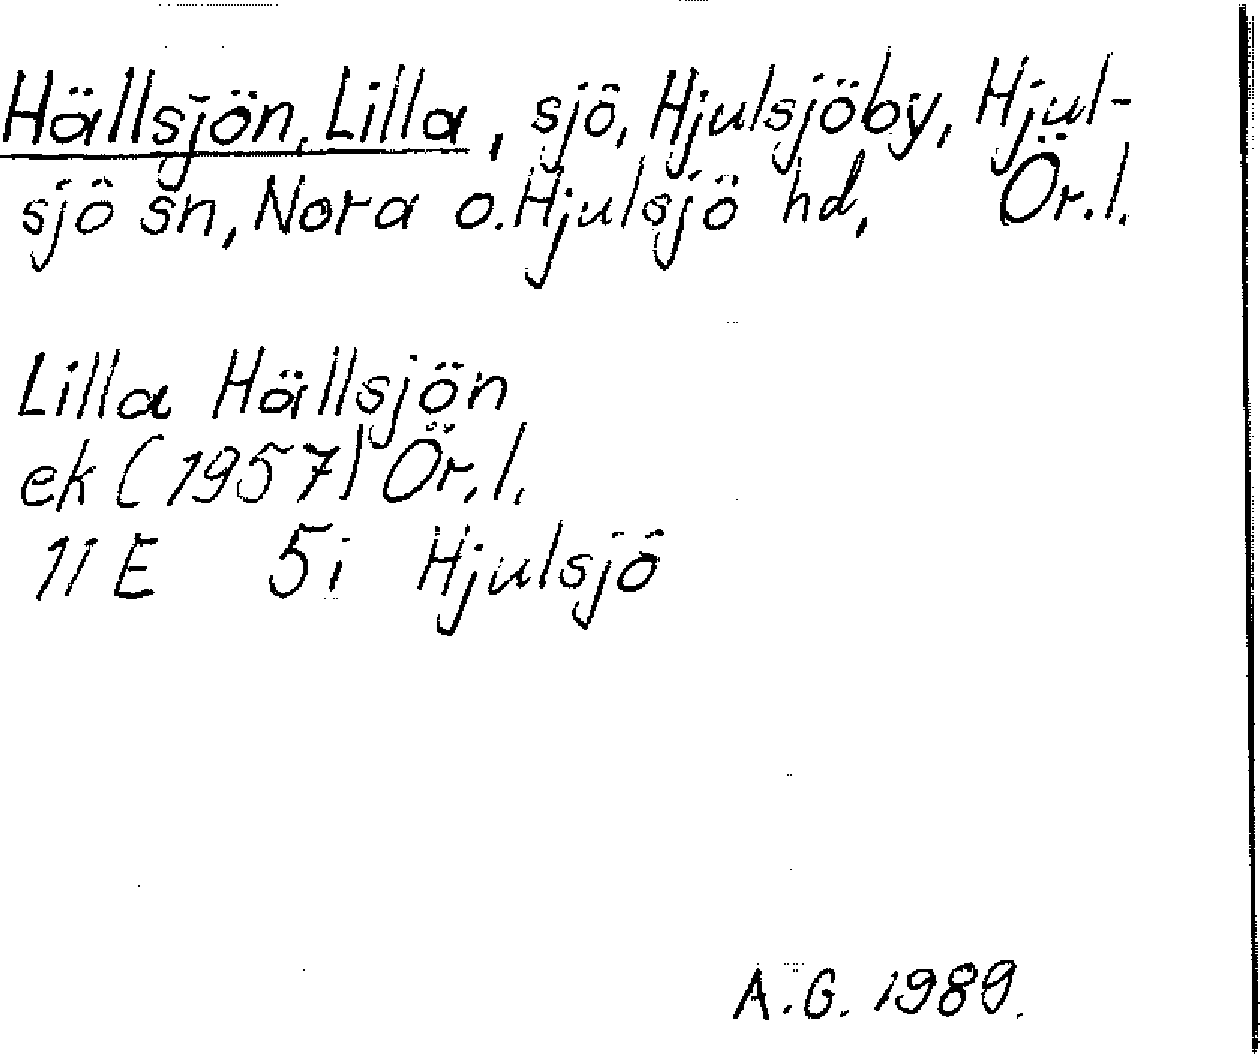 Hällsjön, Lilla, sjö, Hjulsjöby, Hjul-
sjö sn, Nora o. Hjulsjö hd, Ör.l.
Lilla Hällsjön
ek (1957) Ör.l.
11 E 5i Hjulsjö
A.G. 1989.